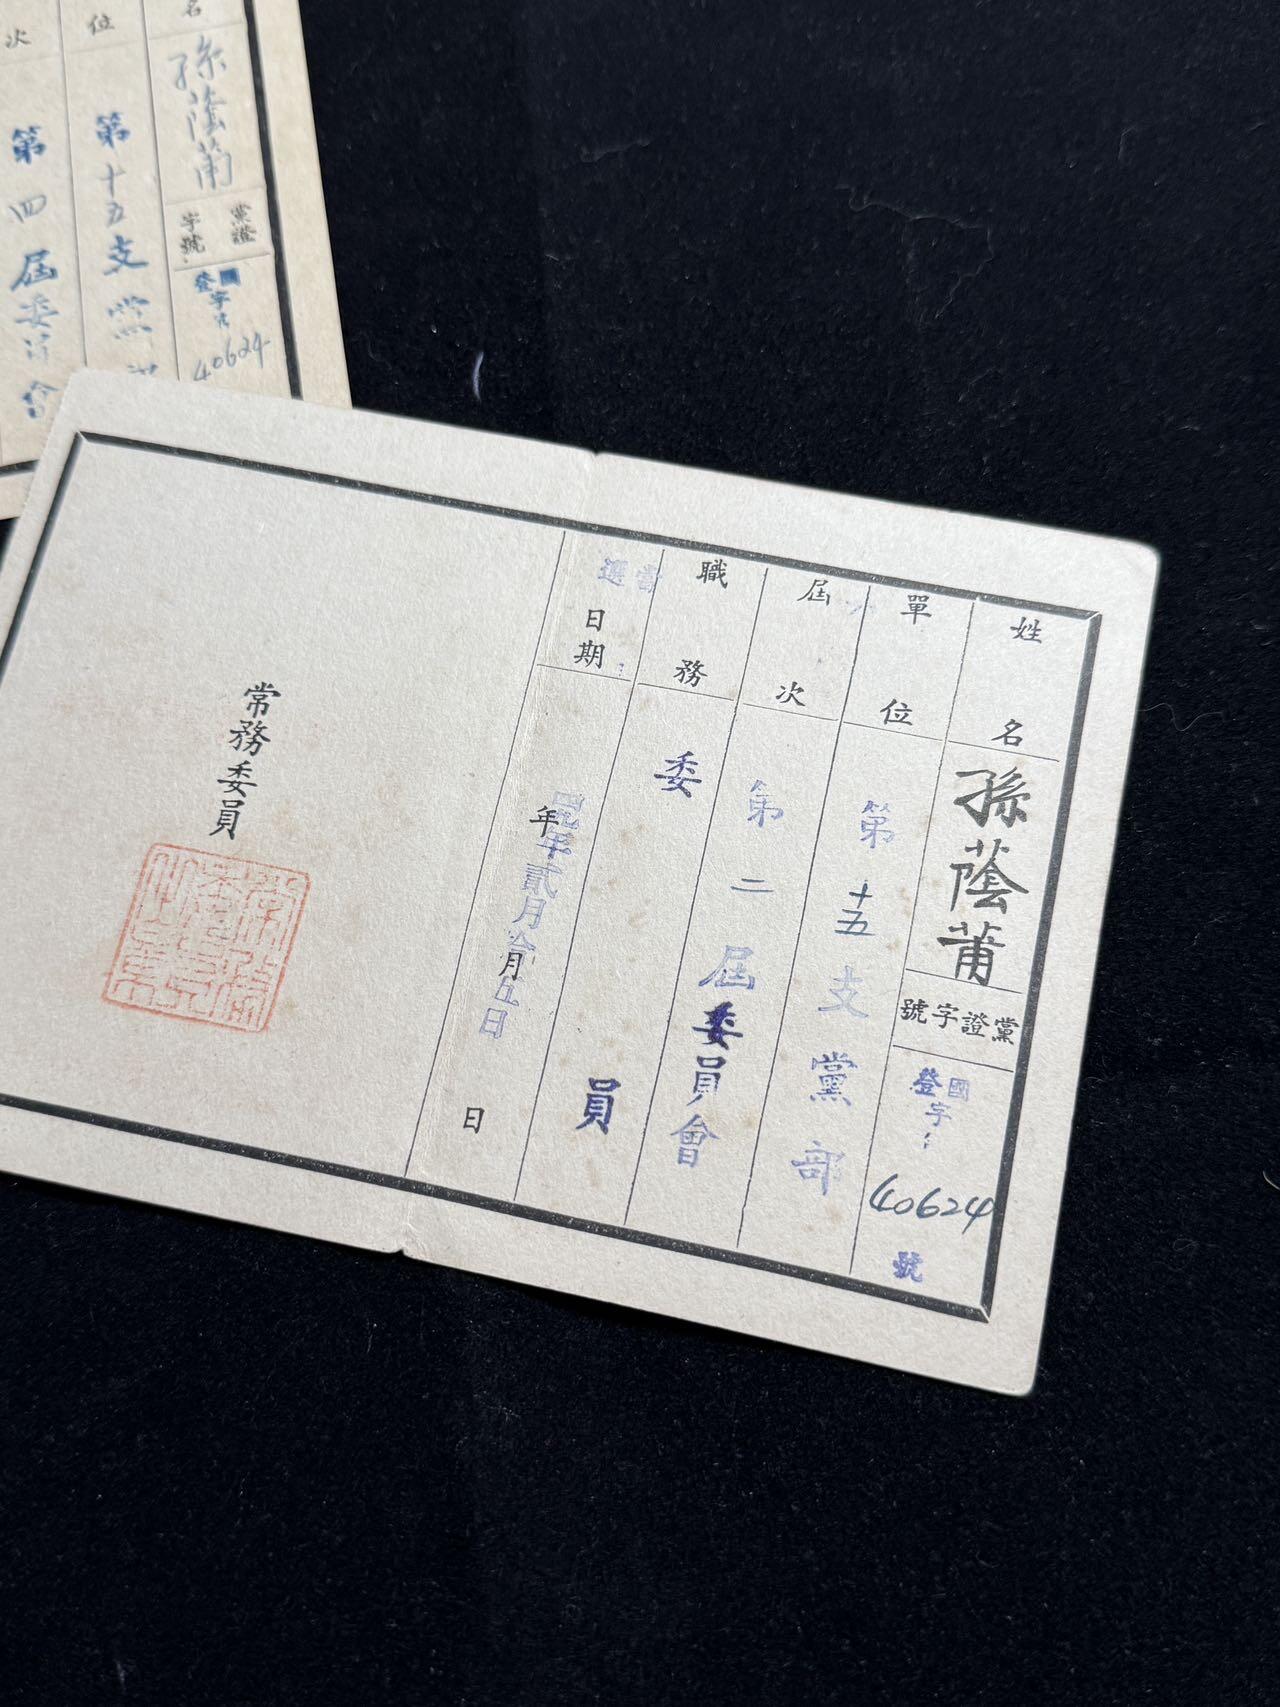 名
孫蔭莆
黨證字號
國登字第
40624
位
第十五支黨
次
第四屆委員會
姓名
孫蔭莆
黨證字號
國登字
40624
號
單位
第十五支黨部
屆次
第二屆委員會
職務
委員
當選日期
年 月 日
年貳月拾五日
常務委員